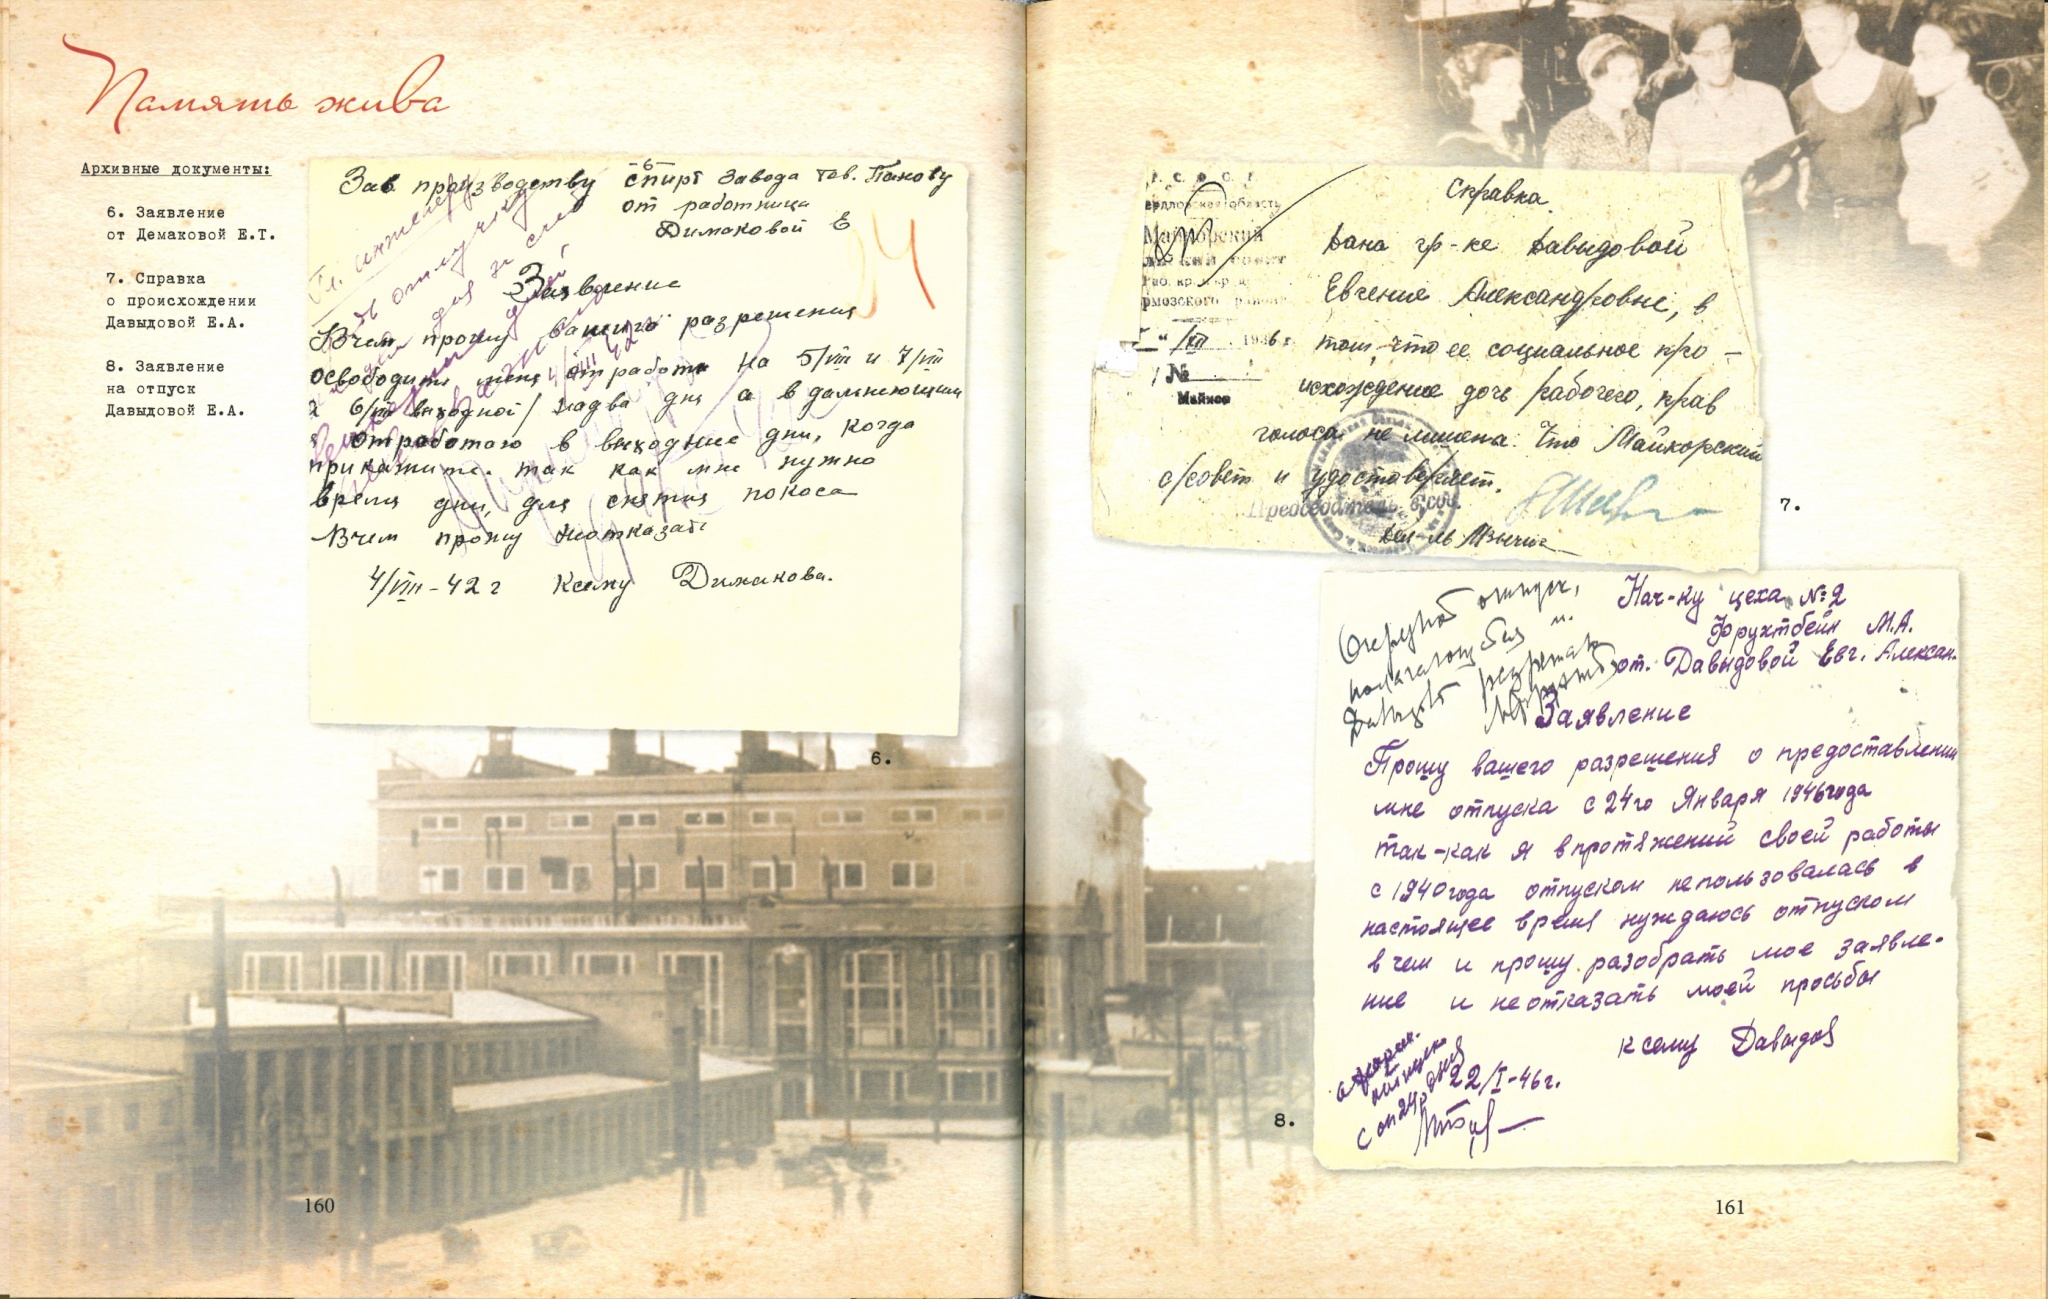 Память жива
Архивные документы:
6. Заявление
от Демаковой Е.Т.
7. Справка
о происхождении
Давыдовой Е.А.
8. Заявление
на отпуск
Давыдовой Е.А.
Зав производству спирт завода тов. Панову
от работница
Димаковой Е
Заявление
Вчем прошу вашего разрешения
освободить меня от работы на 5/VIII и 7/VIII
6/VIII выходной/ на два дня а в дальнеющим
я отработаю в выходние дни, когда
прикажите. так как мне нужно
время дни, для снятия покоса
Вчем прошу неотказать
4/VIII-42 г Ксему Димакова.
6.
Справка
Дана гр-ке Давыдовой
Евгение Александровне, в
том, что ее социальное про-
исхождение дочь рабочего, прав
голоса не лишена. Что Майкорский
с/совет и удостоверяет.
Майкорский
"/XII 1936 г.
№
Майкор
Председатель
7.
Нач-ку цеха №2
Фрухтбейн М.А.
от. Давыдовой Евг. Алексан.
Заявление
Прошу вашего разрешения о предоставлении
мне отпуска с 24го Января 1946года
так-как я впротяжений своей работы
с 1940года отпуском непользовалась в
настоящее время нуждаюсь отпуском
в чем и прошу разобрать мое заявле-
ние и неотказать моей просьбы
ксему Давыдов
22/I-46г.
8.
160
161